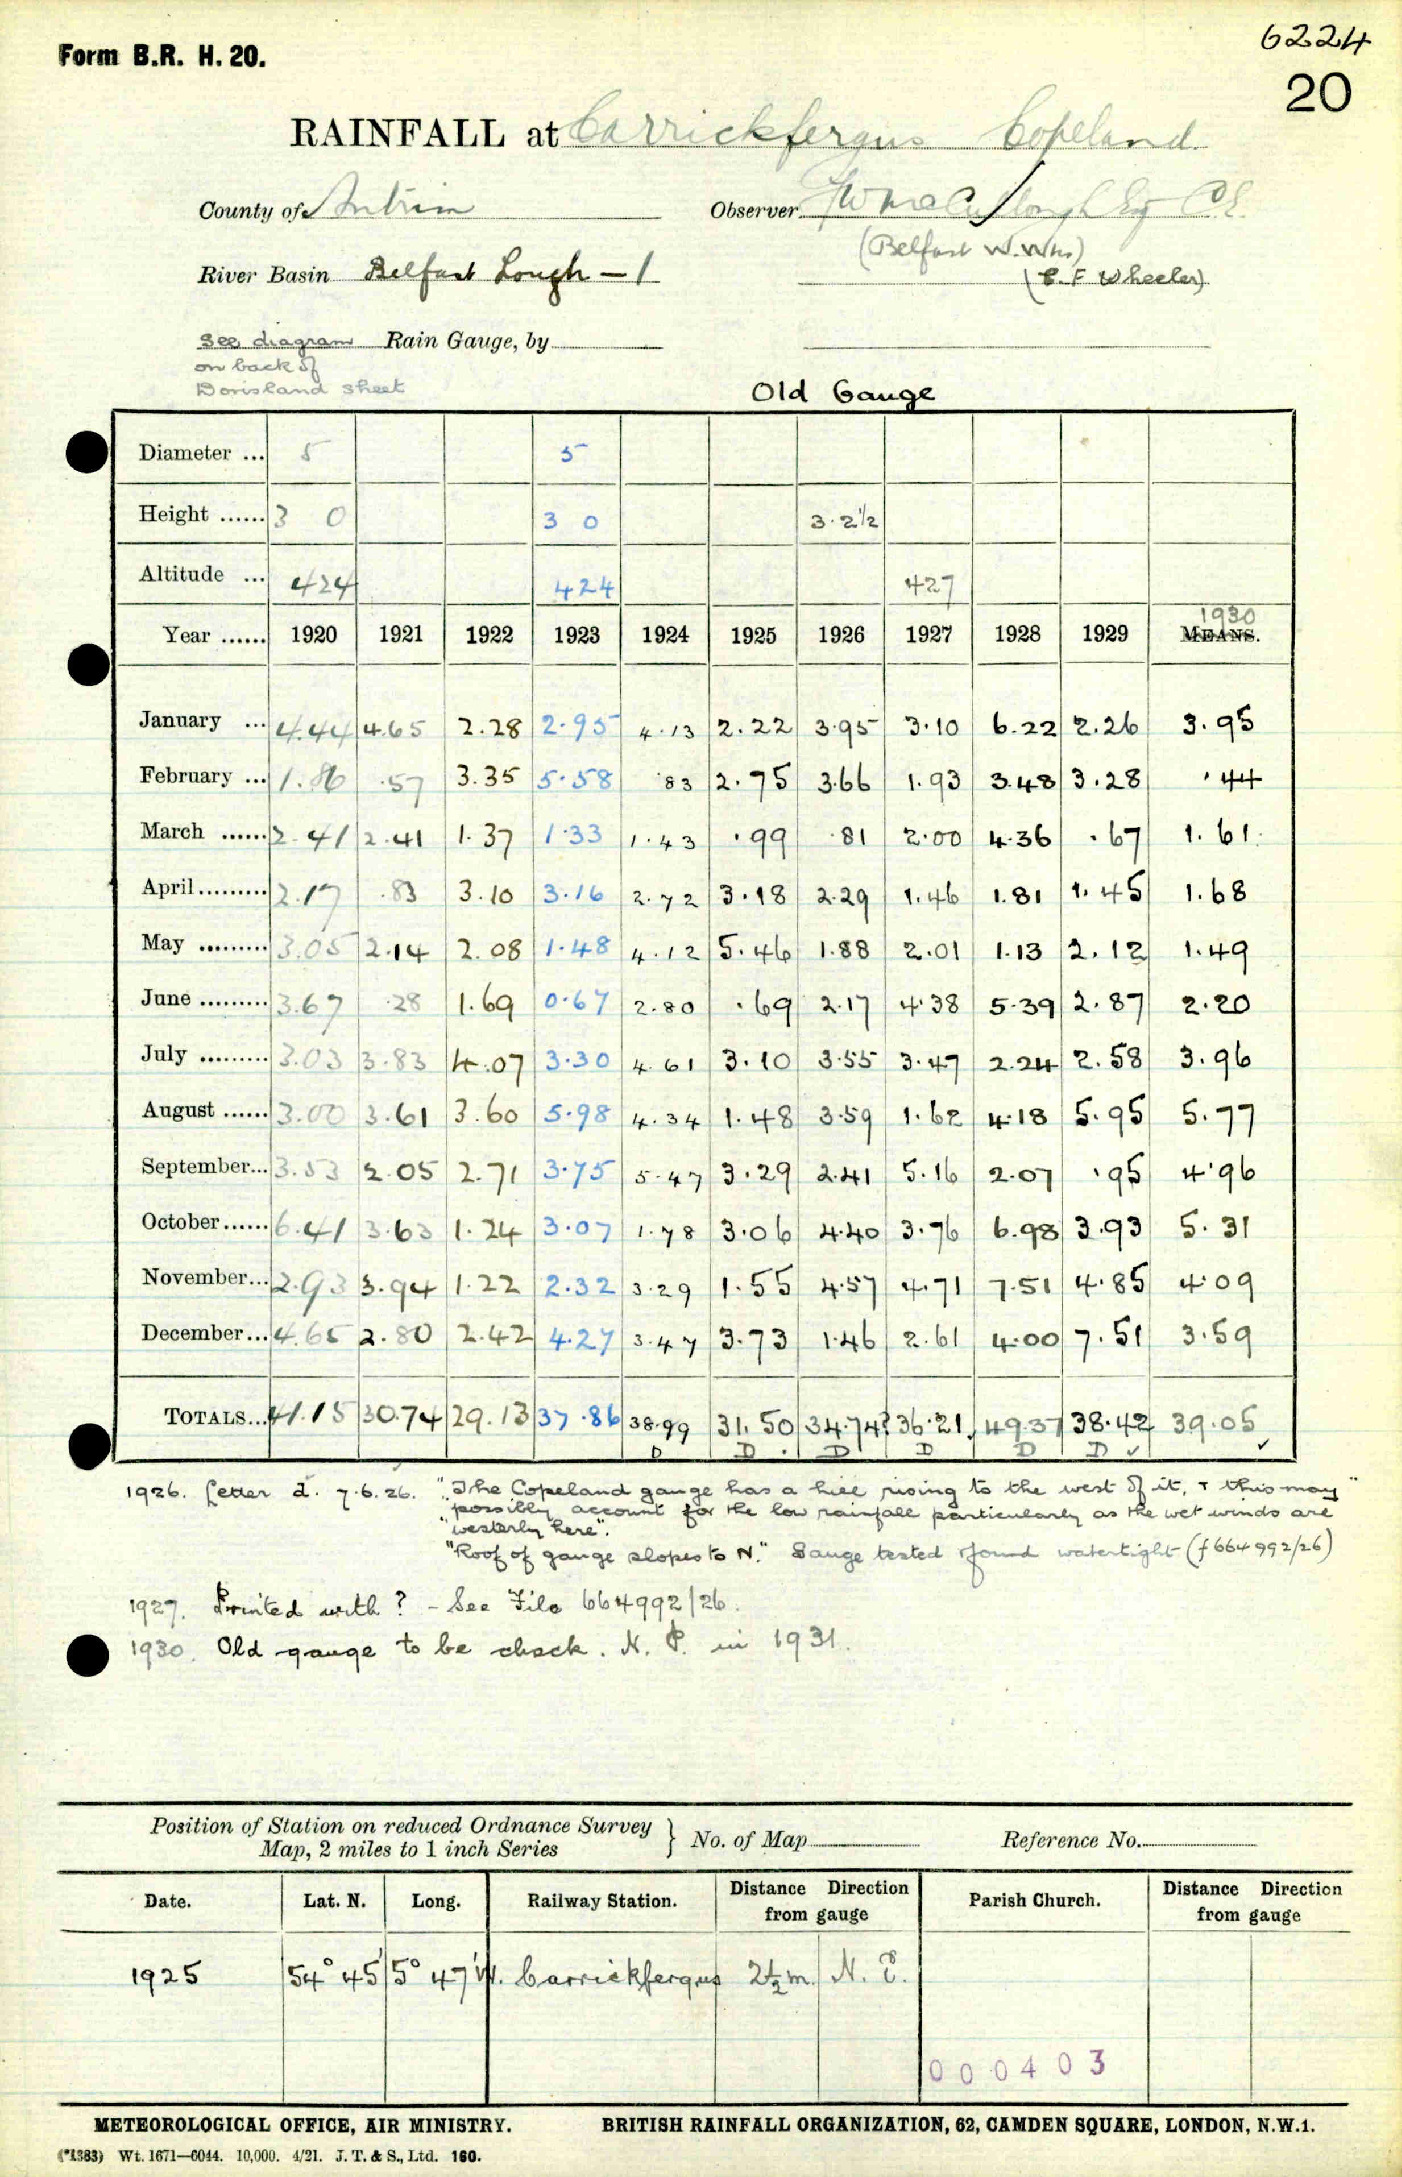 6224
Form B.R. H. 20.
20
RAINFALL at Carrickfergus Copeland
County of Antrim Observer
(Belfast W. Wks)
River Basin Belfast Lough - 1 (E. F Wheeler)
See diagram Rain Gauge, by
on back of
Dorisland sheet
Old Gauge
Diameter ... 5 5
Height ...... 3 0 3 0 3·2½
Altitude ... 424 424 427
1930
Year ...... 1920 1921 1922 1923 1924 1925 1926 1927 1928 1929 MEANS.
January ... 4.44 4.65 2.28 2.95 4.13 2.22 3.95 3.10 6.22 2.26 3.95
February ... 1.86 .57 3.35 5.58 .83 2.75 3.66 1.93 3.48 3.28 .44
March ...... 2.41 2.41 1.37 1.33 1.43 .99 .81 2.00 4.36 .67 1.61
April ......... 2.17 .83 3.10 3.16 2.72 3.18 2.29 1.46 1.81 1.45 1.68
May ......... 3.05 2.14 2.08 1.48 4.12 5.46 1.88 2.01 1.13 2.12 1.49
June ......... 3.67 .28 1.69 0.67 2.80 .69 2.17 4.38 5.39 2.87 2.20
July ......... 3.03 3.83 4.07 3.30 4.61 3.10 3.55 3.47 2.24 2.58 3.96
August ...... 3.00 3.61 3.60 5.98 4.34 1.48 3.59 1.62 4.18 5.95 5.77
September... 3.53 2.05 2.71 3.75 5.47 3.29 2.41 5.16 2.07 .95 4.96
October...... 6.41 3.63 1.24 3.07 1.78 3.06 4.40 3.76 6.98 3.93 5.31
November... 2.93 3.94 1.22 2.32 3.29 1.55 4.57 4.71 7.51 4.85 4.09
December... 4.65 2.80 2.42 4.27 3.47 3.73 1.46 2.61 4.00 7.51 3.59
TOTALS... 41.15 30.74 29.13 37.86 38.99 31.50 34.74? 36.21 49.37 38.42 39.05
D D D D D D ✓ ✓
1926. Letter d. 7.6.26. "The Copeland gauge has a hill rising to the west of it, & this may
"possibly account for the low rainfall particularly as the wet winds are"
"westerly here".
"Roof of gauge slopes to N." Gauge tested & found watertight (f 664992/26)
1927. Printed with ? - See File 664992/26.
1930. Old gauge to be check. N. P. in 1931.
Position of Station on reduced Ordnance Survey
Map, 2 miles to 1 inch Series } No. of Map Reference No.
Date. Lat. N. Long. Railway Station. Distance Direction from gauge Parish Church. Distance Direction from gauge
1925 54° 45' 5° 47' W. Carrickfergus 2½ m. N. E.
000403
METEOROLOGICAL OFFICE, AIR MINISTRY. BRITISH RAINFALL ORGANIZATION, 62, CAMDEN SQUARE, LONDON, N.W.1.
(*1383) Wt. 1671—6044. 10,000. 4/21. J. T. & S., Ltd. 160.